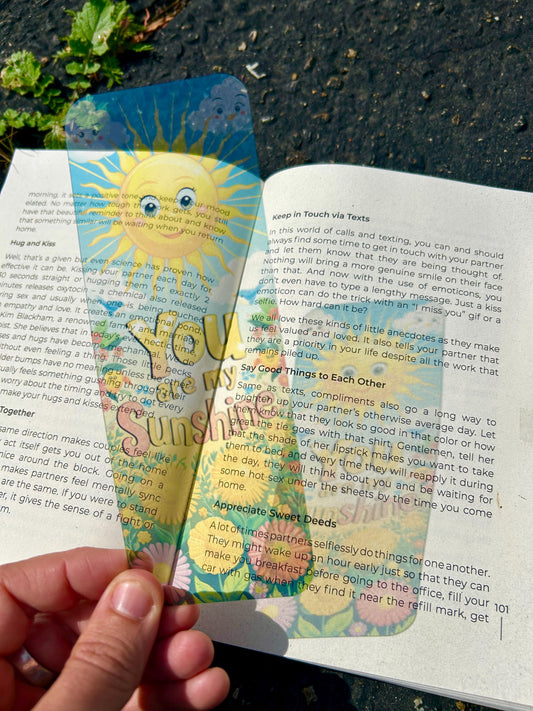 morning, it sets a positive tone to keep your mood
elated. No matter how tough the work gets, you still
have that beautiful reminder to think about and know
that something similar will be waiting when you return
home.
Hug and Kiss
Well, that's a given but even science has proven how
effective it can be. Kissing your partner each day for
0 seconds straight or hugging for exactly 2
inutes releases oxytocin – a chemical also released
ring sex and usually when one is being nurtured
h empathy and love. It creates an emotional bond.
Kim Blackhart, a renowned family and connection
pist. She believes that in today's hectic times,
sses and hugs have become mechanical. We do
thout even feeling a thing. Unless the pecks
lder bumps have no meaning unless through their
ually feels something guiding
worry about the timing and try to dot every
make your hugs and kisses extended
Together
same direction makes couples feel like
r act itself gets you out of the home
nice around the block. Going on a
makes partners feel mentally sync
are the same. If you were to stand
er, it gives the sense of a fight or
m.
You
are my
Sunshine
Keep in Touch via Texts
In this world of calls and texting, you can and should
always find some time to get in touch with your partner
and let them know that they are being thought of.
Nothing will bring a more genuine smile on their face
than that. And now with the use of emoticons, you
don't even have to type a lengthy message. Just a kiss
emoticon can do the trick with an "I miss you" gif or a
selfie. How hard can it be?
We all love these kinds of little anecdotes as they make
us feel valued and loved. It also tells your partner that
they are a priority in your life despite all the work that
remains piled up.
Say Good Things to Each Other
Same as texts, compliments also go a long way to
brighten up your partner's otherwise average day. Let
them know that they look so good in that color or how
great the tie goes with that shirt. Gentlemen, tell her
that the shade of her lipstick makes you want to take
them to bed, and every time they will reapply it during
the day, they will think about you and be waiting for
some hot sex under the sheets by the time you come
home.
Appreciate Sweet Deeds
A lot of times partners selflessly do things for one another.
They might wake up an hour early just so that they can
make you breakfast before going to the office, fill your
car with gas when they find it near the refill mark, get
101